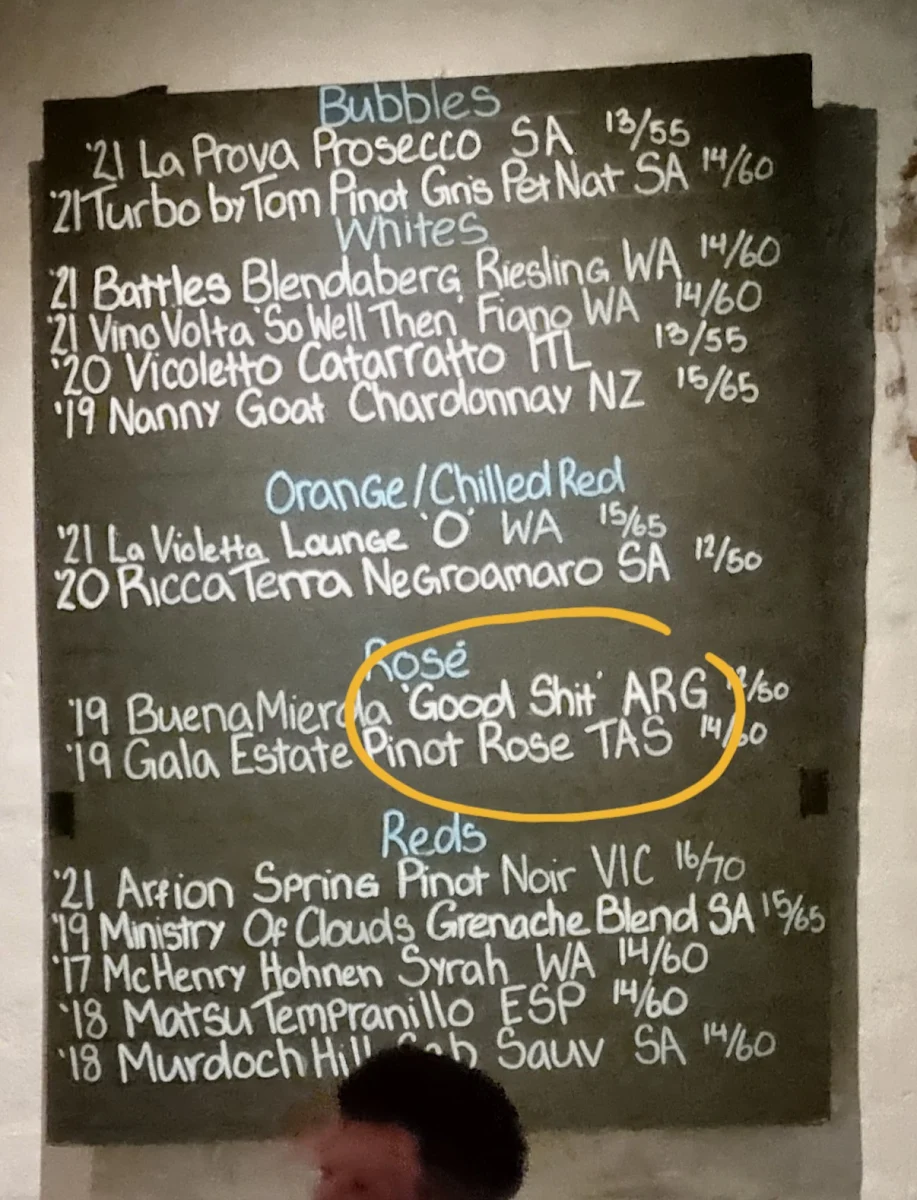 Bubbles
'21 La Prova Prosecco SA 13/55
'21 Turbo by Tom Pinot Gris Pet Nat SA 14/60
Whites
'21 Battles Blendaberg Riesling WA 14/60
'21 Vino Volta 'So Well Then' Fiano WA 14/60
'20 Vicoletto Catarratto ITL 13/55
'19 Nanny Goat Chardonnay NZ 15/65
Orange/Chilled Red
'21 La Violetta Lounge 'O' WA 15/65
'20 Ricca Terra Negroamaro SA 12/50
Rosé
'19 Buena Mierda 'Good Shit' ARG /50
'19 Gala Estate Pinot Rose TAS 14/60
Reds
'21 Spring Pinot Noir VIC 16/70
'19 Ministry Of Clouds Grenache Blend SA 15/65
'17 McHenry Hohnen Syrah WA 14/60
'18 Matsu Tempranillo ESP 14/60
'18 Murdoch Hill Sauv SA 14/60